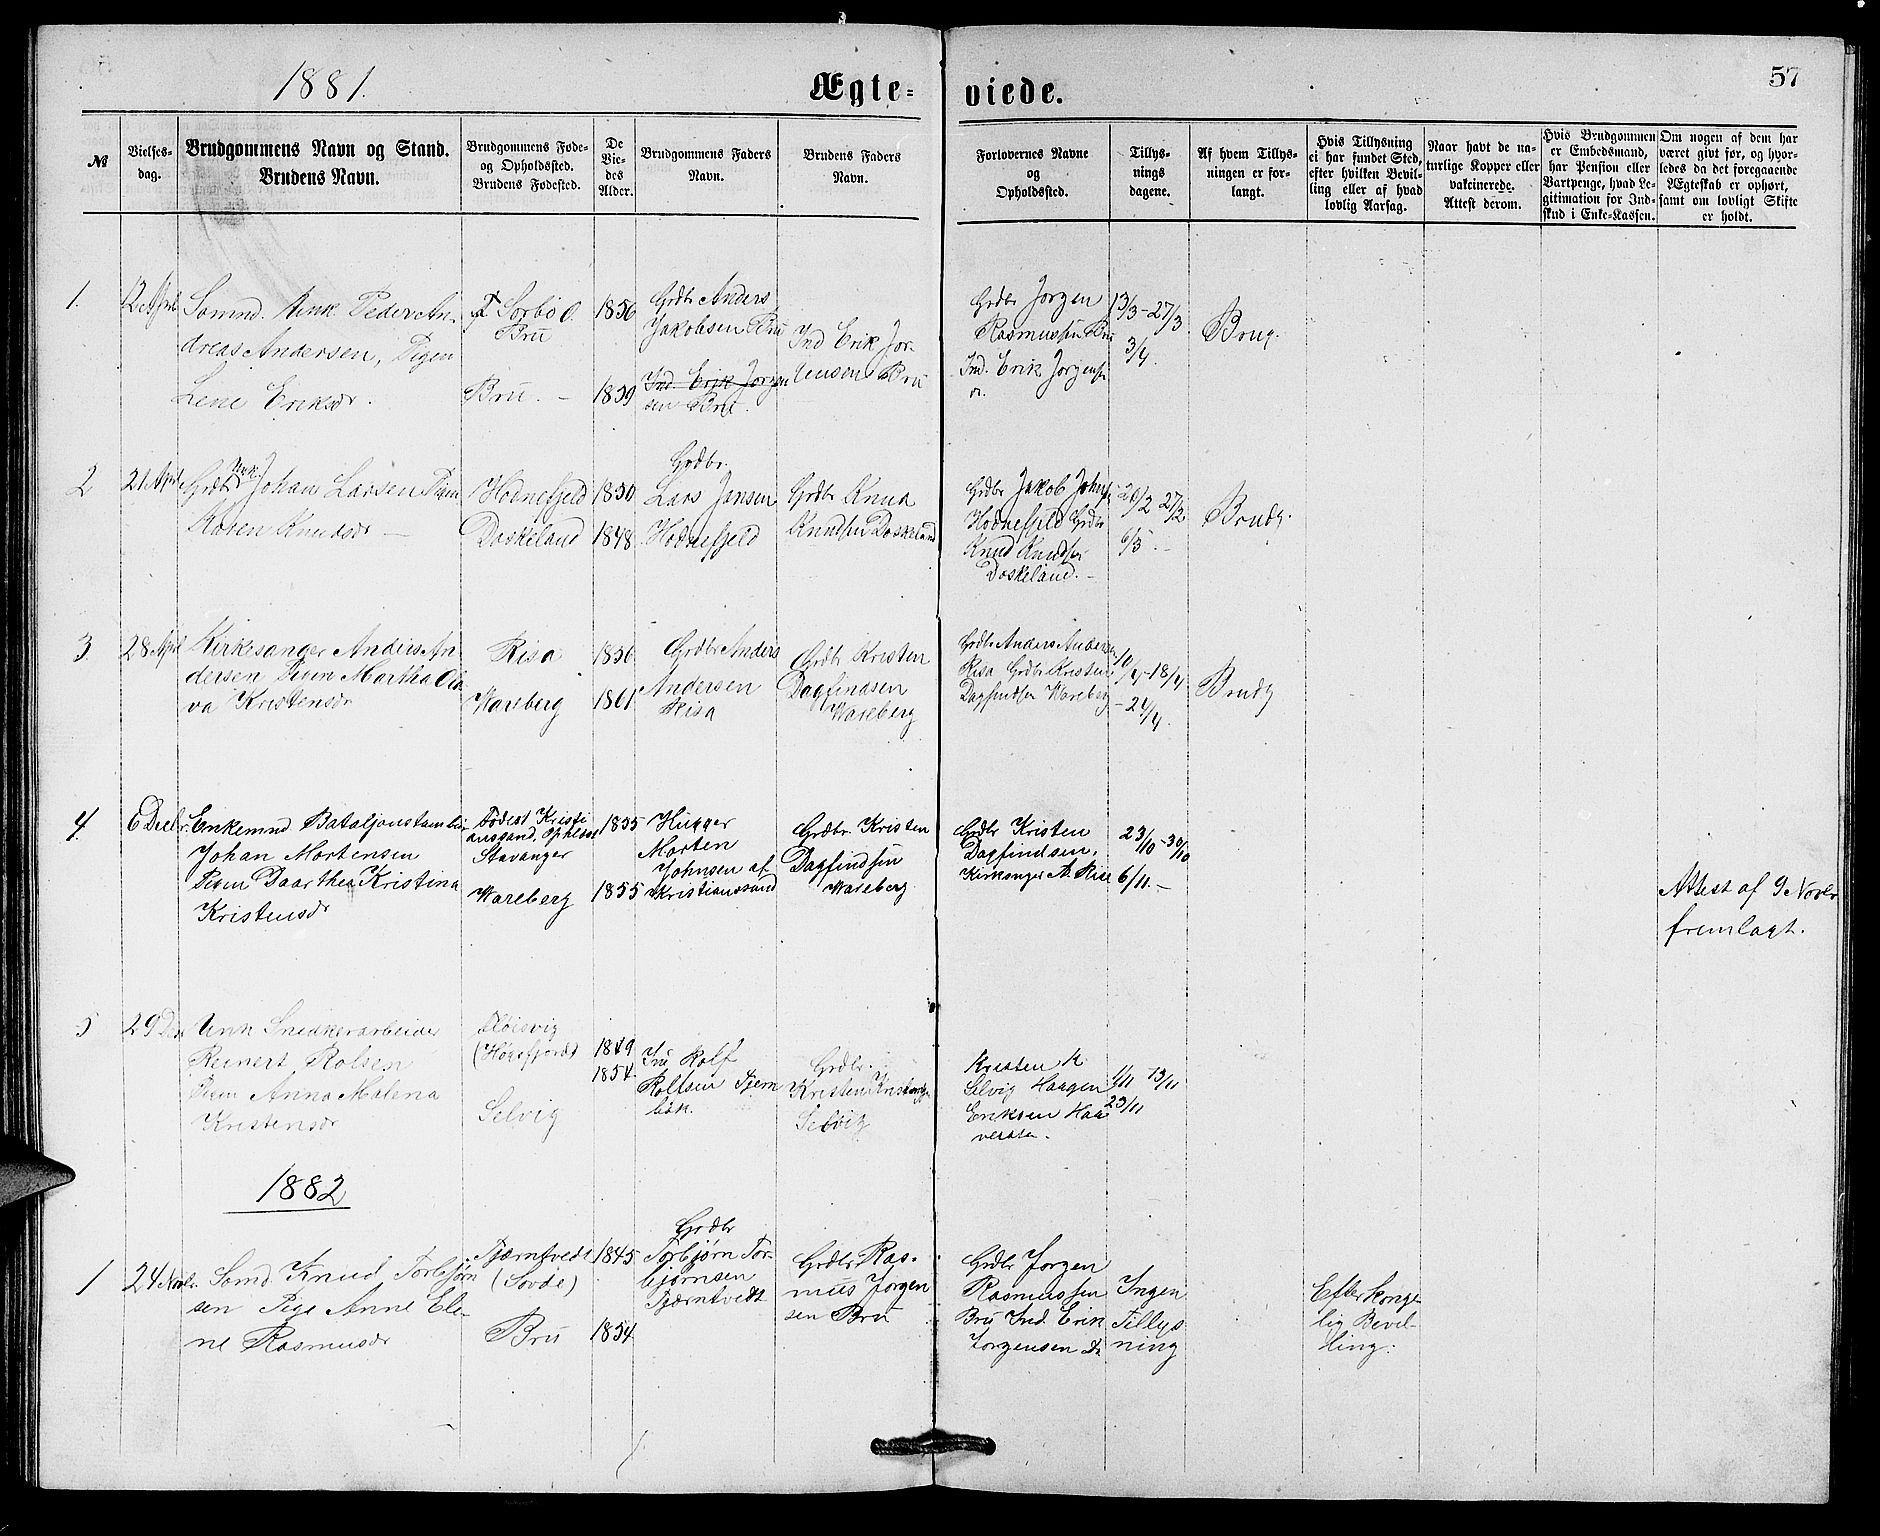 1881.
Ægte-
viede.
57
№
Vielses-
dag.
Brudgommens Navn og Stand.
Brudens Navn.
Brudgommens Føde-
og Opholdssted.
Brudens Fødested.
De
Vie-
des
Alder.
Brudgommens Faders
Navn.
Brudens Faders
Navn.
Forlovernes Navne
og
Opholdssted.
Tillys-
nings
dagene.
Af hvem Tillys-
ningen er for-
langt.
Hvis Tillysning
ei har fundet Sted,
efter hvilken Bevil-
ling eller af hvad
lovlig Aarsag.
Naar havt de na-
turlige Kopper eller
vakcinerede.
Attest derom.
Hvis Brudgommen
er Embedsmand,
har Pension eller
Vartpenge, hvad Le-
gitimation for Ind-
skud i Enke-Kassen.
Om nogen af dem har
været givt før, og hvor-
ledes da det foregaaende
Ægteskab er ophørt,
samt om lovligt Skifte
er holdt.
1.
12 April
Sømnd. Unk. Peder An-
dreas Andersen, Pigen
Lene Eriksdr.
Sørbø O.
Bru
Bru. –
1856
1859
Grdbr Anders
Jakobsen Bru
Ind. Erik Jørgen
sen Bru.
Ind Erik Jør-
gensen Bru
Grdbr Jørgen
Rasmussen Bru
Ind. Erik Jørgens
13/3 - 27/3
3/4.
Brug.
2
21 April
Grdbr Unk. Johan Larsen Pigen
Karen Knudsdr –
Hodnefjeld
Daskeland
1850
1848
Grdbr.
Lars Jansen
Hodnefjeld
Grdbr Knud
Knudsen Daskeland
Grdbr Jakob Johns
Hodnefjeld Grdbr
Knud Knudsen
Daskeland. –
20/2 27/2
6/3. –
Brudg.
3
28 April
Kirkesanger Anders An-
dersen Pigen Martha
va Kristensdr
Risa
Wareberg
1856
1861
Grdbr Anders
Andersen
Risa
Grdbr Kristen
Dagfindsen
Wareberg
Grdbr Anders Andersen
Risa Grdbr Kristen
Dagfindsen Wareberg
10/4 - 18/4
- 24/4.
Brudg
4.
6 Decbr.
Enkemnd Bataljonstambur
Johan Mortensen
Pigen Daarthea Kristina
Kristensdr
Födest Kristi
ansand, Opholds
Stavanger
Wareberg
1835
1855
Hugger
Morten
Johnsen af
Kristianssand
Grdbr. Kristen
Dagfindsen
Wareberg
Grdbr Kristen
Dagfindsen,
Kirksanger A. Risa
23/10 - 30/10
6/11. –
Attest af 9 Novbr
fremlagt.
5
29 Dec
Unk Snedkerarbeider
Reinert Rolsen
Pigen Anna Malena
Kristensdr
(Høgsfjord)
Selvig
1849
1854.
Rolf
Rolfsen Tjern
Grdbr.
Kristen Kristensen
Selvig
Kristen K.
Selvig Haagen
Eriksen Haa
13/11
23/11
1882
1
24 Novbr.
Sømd. Knud Torbjørn
sen Pige Anne Ele-
ne Rasmusdr
Tjærntvedt
(Sovde)
Bru
1845
1854
Grdbr
Torbjørn Tor-
bjørnsen
Tjærntvedt
Grdbr Ras-
mus Jørgen
sen Bru
Grdbr Jørgen
Rasmussen
Bru Ind. Erik
Jørgensen
Ingen
Tillys
ning
Efter konge-
lig Bevil-
ling.